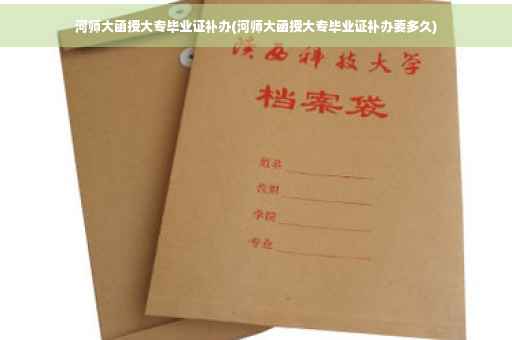 河师大函授大专毕业证补办(河师大函授大专毕业证补办要多久)
陕西科技大学
档案袋
姓名
学院
专业